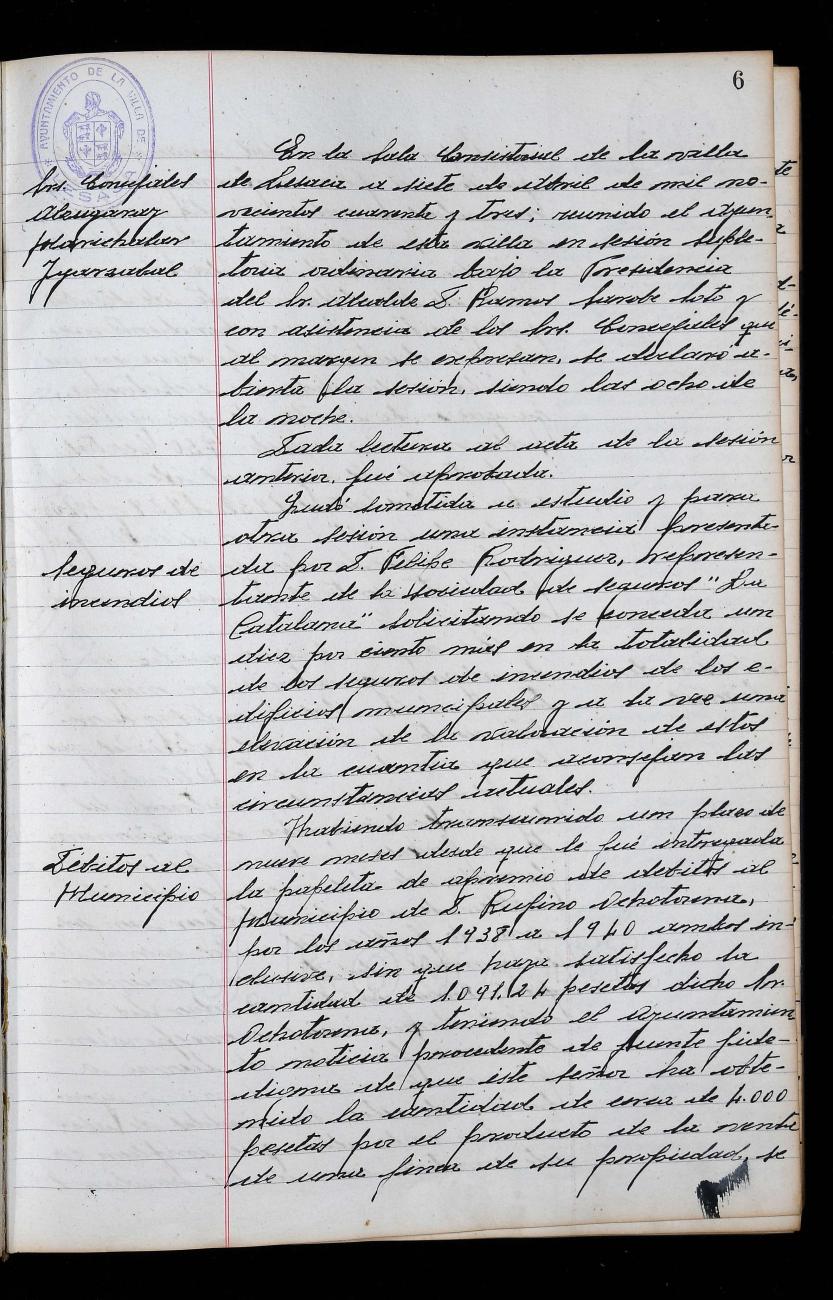 6
AYUNTAMIENTO DE LA VILLA DE
En la Sala Consistorial de la villa
Srs. Concejales
de Lesaca a siete de Abril de mil no-
Alzugaray
vecientos cuarenta y tres; reunido el Ayun
Marichalar
tamiento de esta villa en sesión suple-
Ygarzabal
toria ordinaria bajo la Presidencia
del Sr. Alcalde D. Ramos Sarobe Soto y
con asistencia de los Srs. Concejales que
al margen se expresan, se declaró a-
bierta la sesión, siendo las ocho de
la noche.
Dada lectura al acta de la sesión
anterior, fué aprobada.
Quedó sometida a estudio y para
otra sesión una instancia presenta-
Seguros de
incendios
da por D. Felipe Rodriguez, represen-
tante de la sociedad de seguros "La
Catalana" solicitando se conceda un
diez por ciento más en la totalidad
de los seguros de incendios de los e-
dificios municipales y a la vez una
elevación de la valoración de estos
en la cuantia que aconsejan las
circunstancias actuales.
Habiendo transcurrido un plazo de
Débitos al
Municipio
nueve meses desde que le fué entregada
la papeleta de apremio de debitos al
Municipio de D. Rufino Ochotorena,
por los años 1938 a 1940 ambos in-
clusive, sin que haya satisfecho la
cantidad de 1.091,24 pesetas dicho Sr.
Ochotorena, y teniendo el Ayuntamien
to noticia procedente de fuente fide-
digna de que este señor ha obte-
nido la cantidad de cerca de 4.000
pesetas por el producto de la venta
de una finca de su propiedad, se